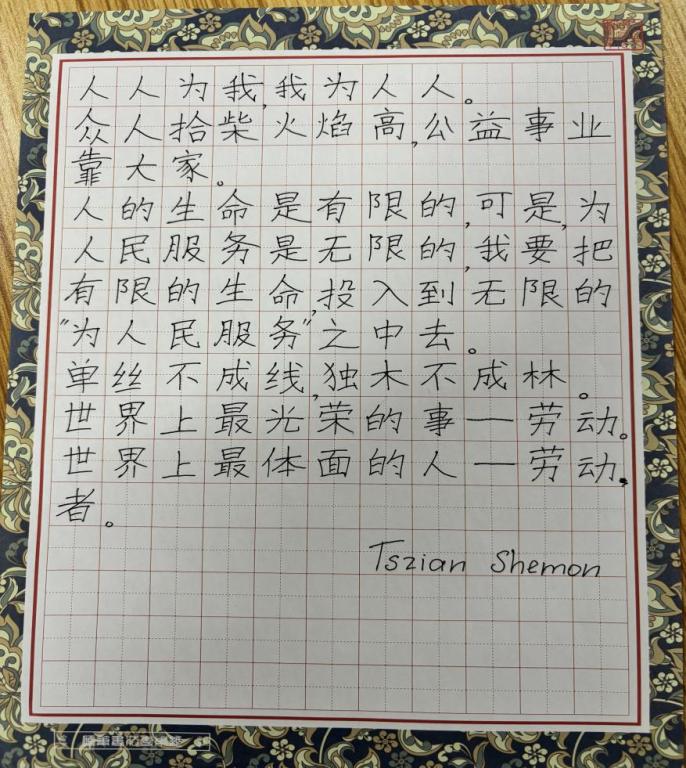 人人为我,我为人人。
众人拾柴火焰高,公益事业
靠大家。
人的生命是有限的,可是,为
人民服务是无限的,我要把
有限的生命,投入到无限的
"为人民服务"之中去。
单丝不成线,独木不成林。
世界上最光荣的事一劳动。
世界上最体面的人一劳动.
者。
Tszian Shemon